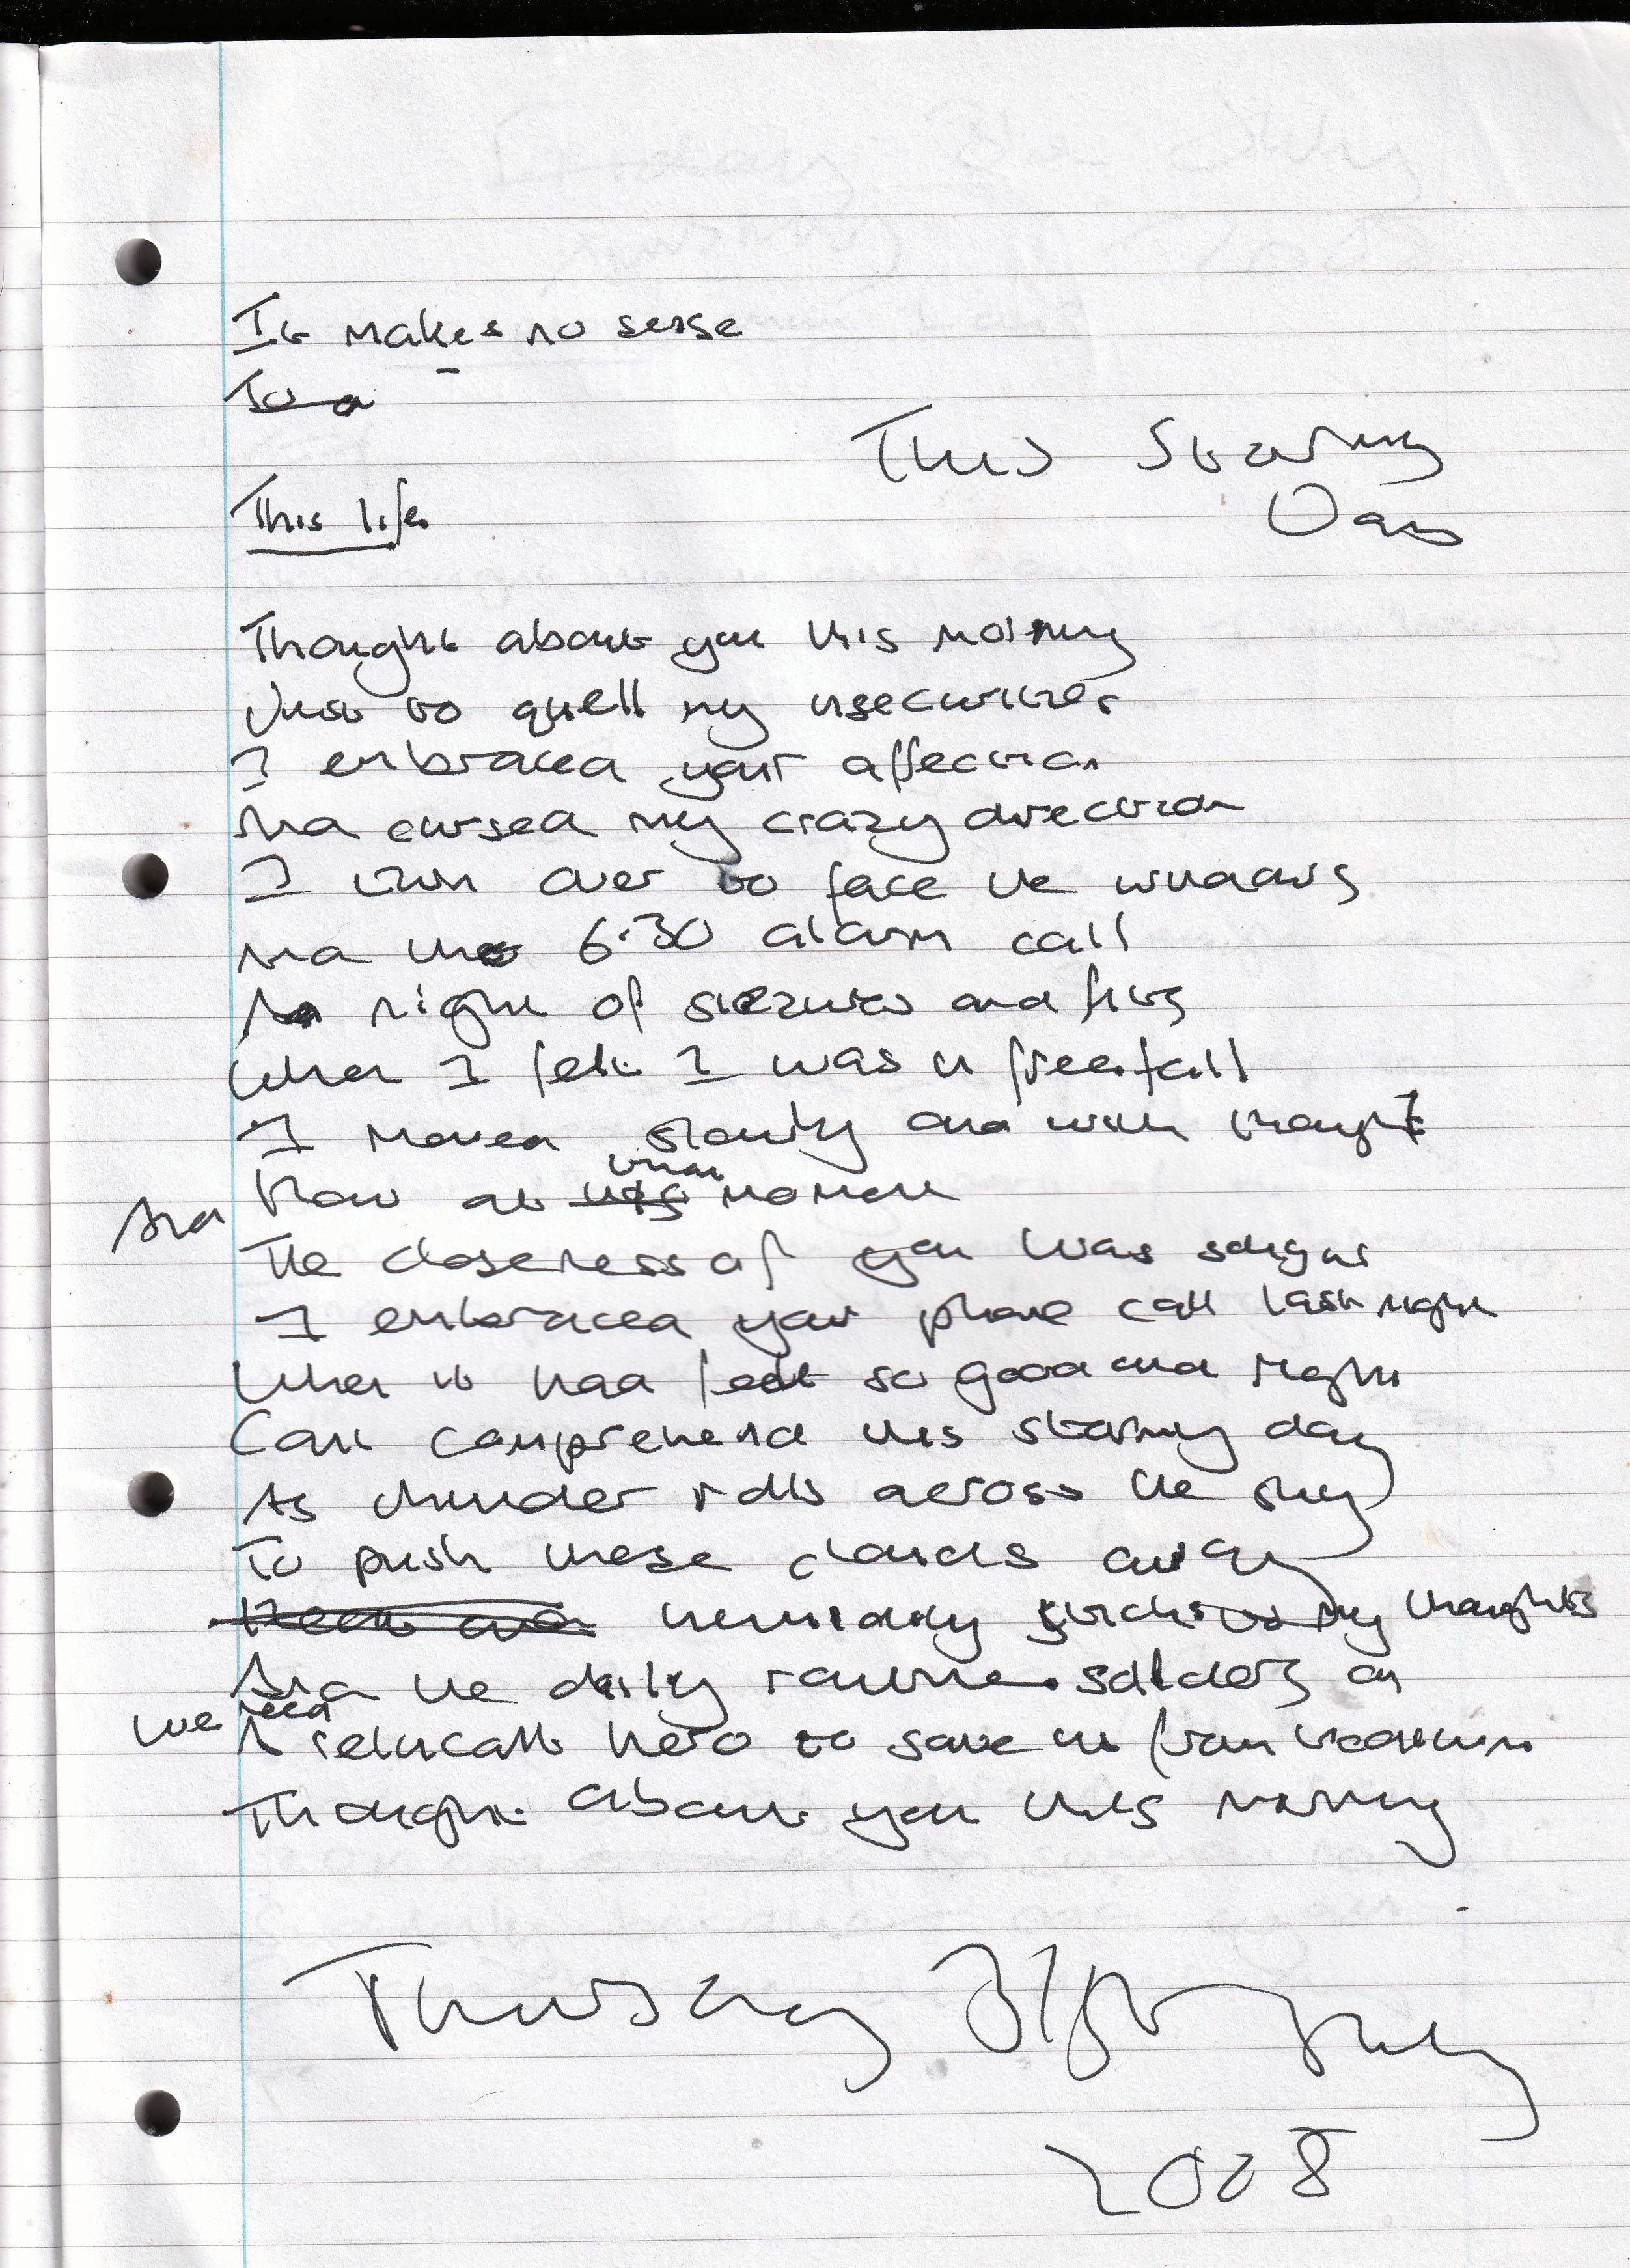 It makes no sense
To a
This Stormy
Day
This life
Thought about you this morning
Just to quell my insecurities
I embraced your affection
And cursed my crazy direction
I turn over to face the windows
And the 6.30 alarm call
A night of and fits
When I felt I was in freefall
I moved slowly and with thought
And that at that moment
The closeness of you was
I embraced your phone call last night
When it had felt so good and right
Can't comprehend this stormy day
As thunder rolls across the sky
To push these clouds away
humidity sticks to my thoughts
And the daily routine soldiers on
We need A reluctant hero to save us from
Thought about you this morning
Thursday 31st July
2008